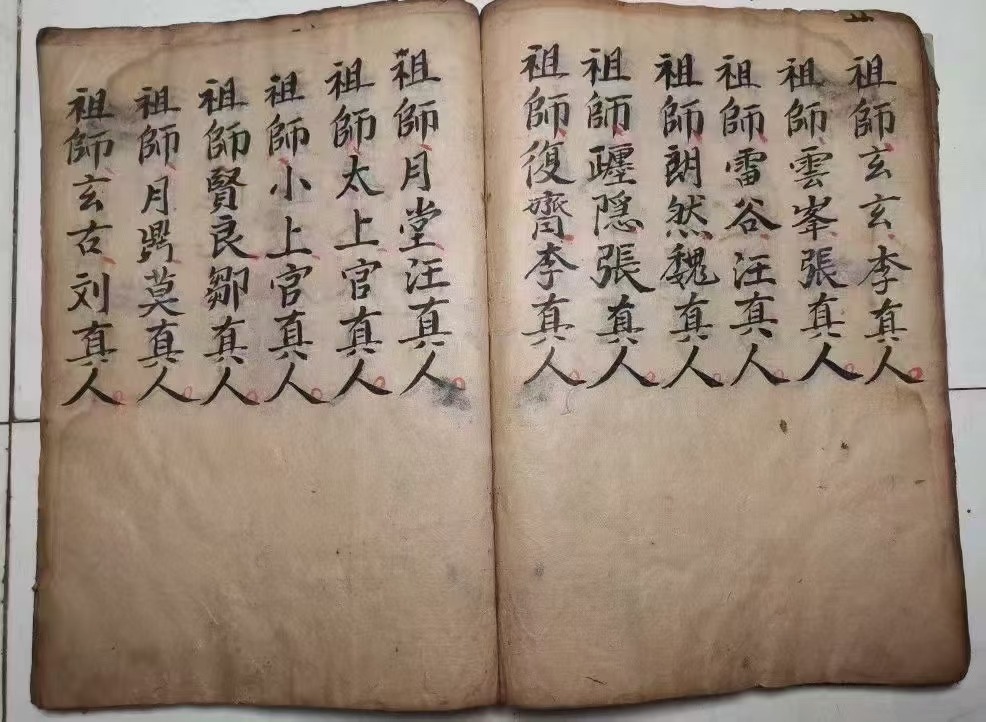 祖師玄玄李真人
祖師雲峯張真人
祖師雷谷汪真人
祖師朗然魏真人
祖師躔隱張真人
祖師復齋李真人
祖師月堂汪真人
祖師太上官真人
祖師小上官真人
祖師賢良鄒真人
祖師月鼎莫真人
祖師玄古刘真人